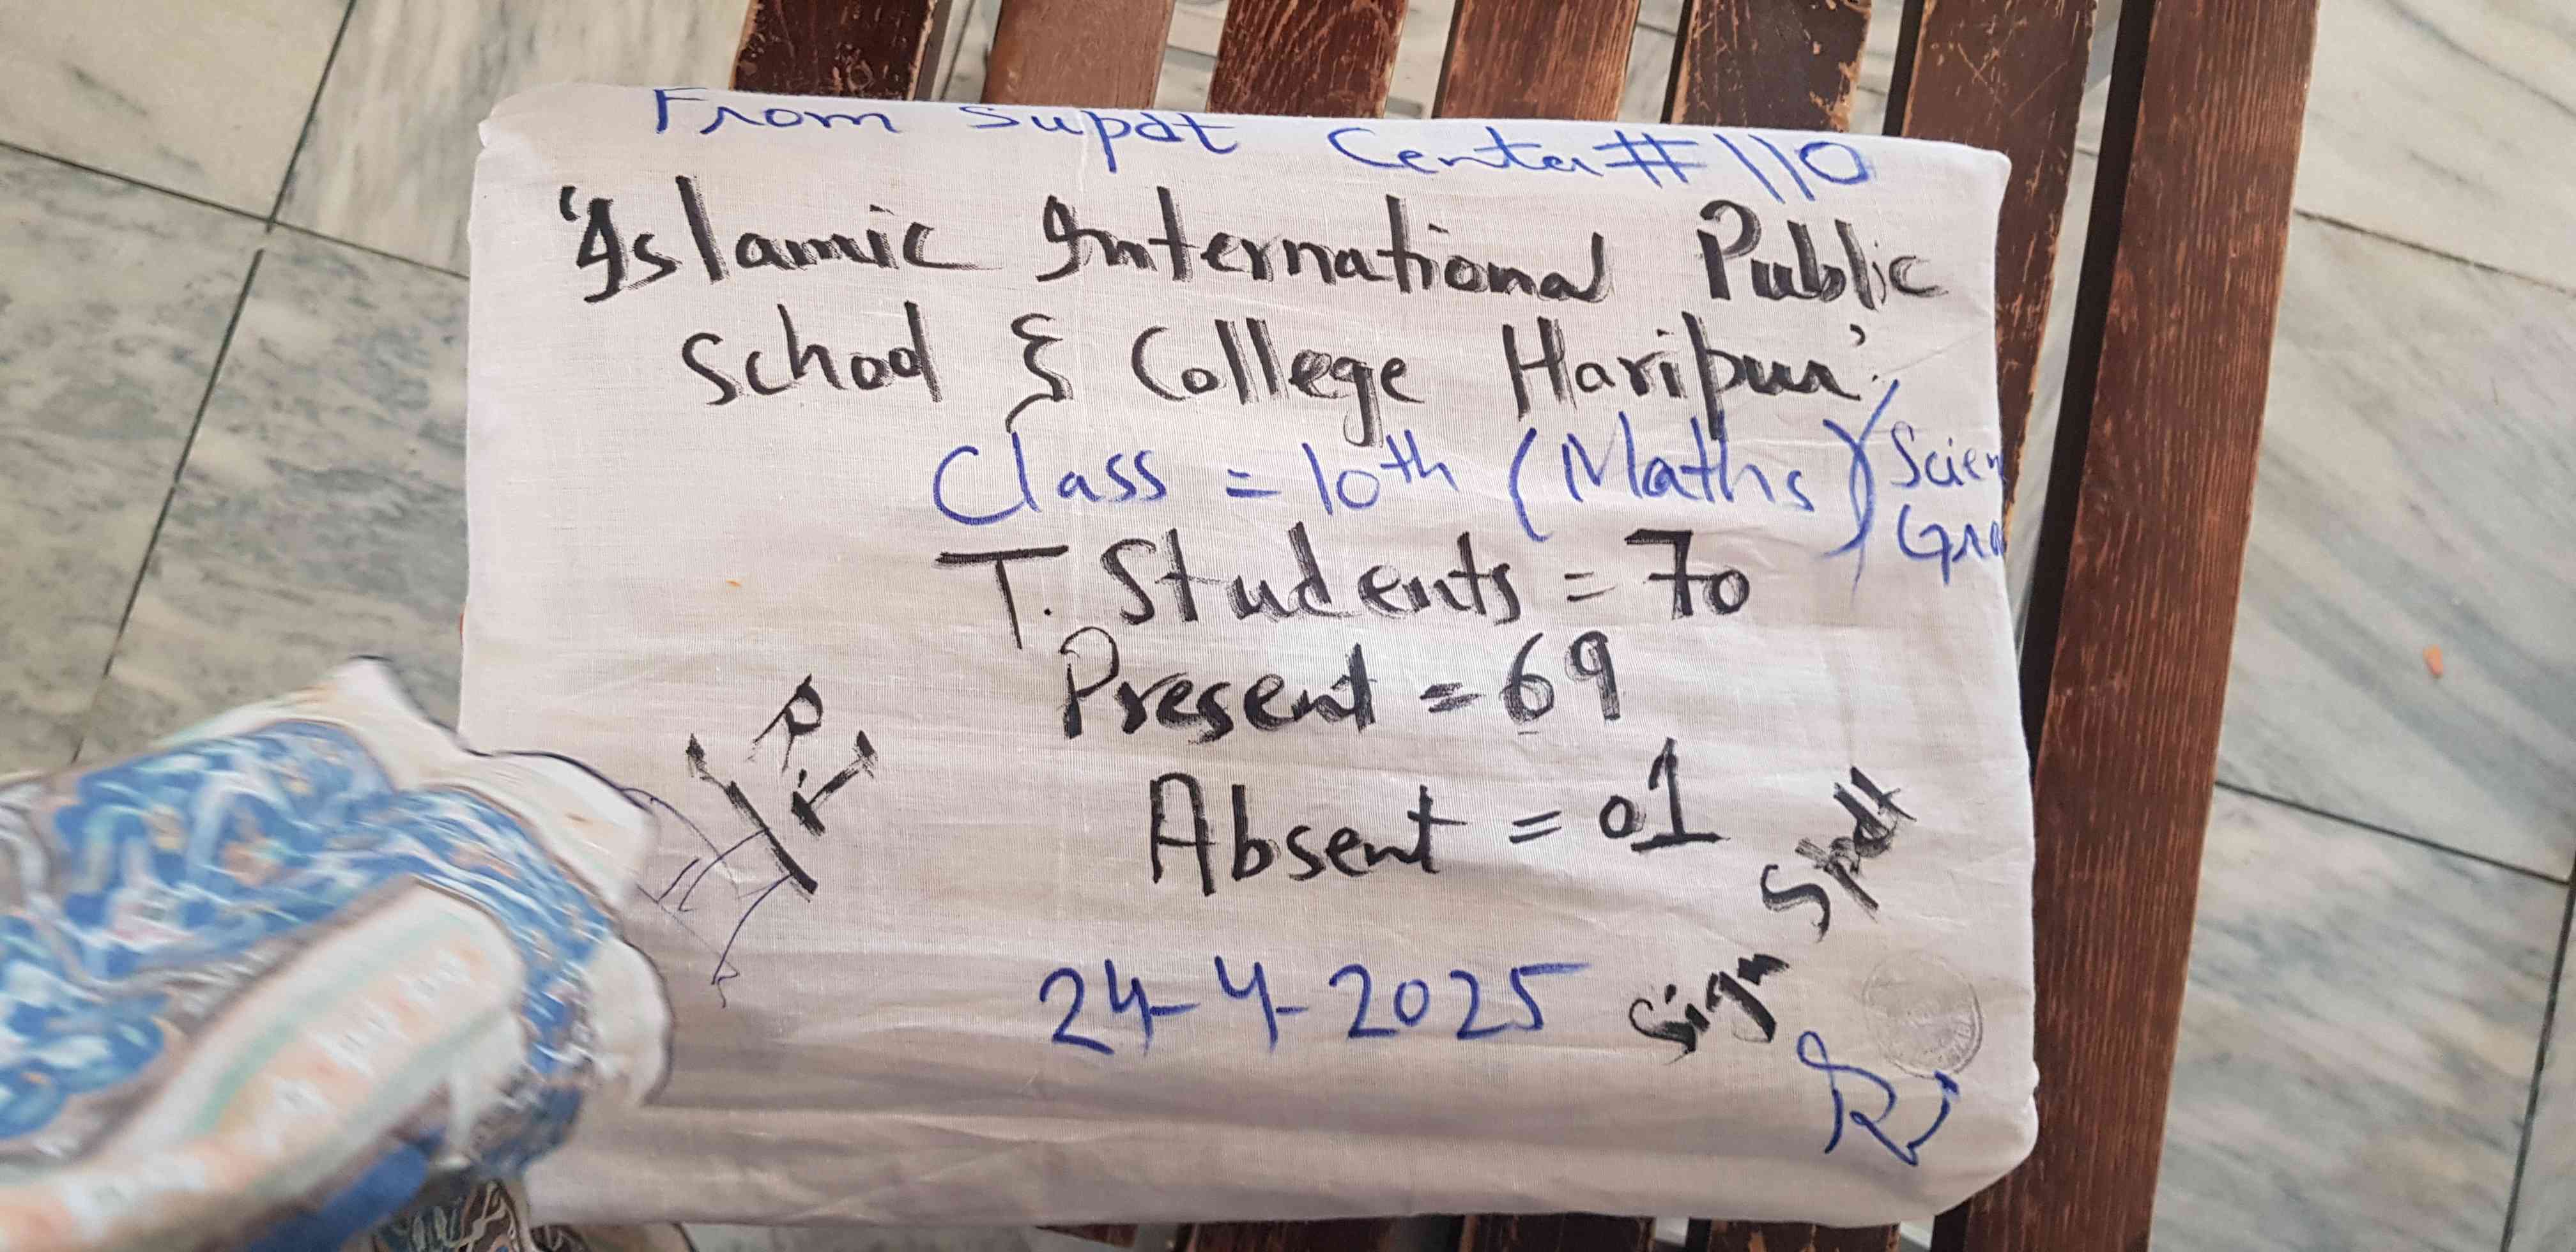 From Supdt Center # 110
'Islamic International Public
School & College Haripur'
Class = 10th (Maths)
T. Students = 70
Present = 69
Absent = 01
24-4-2025
Sign Spdt
R.I